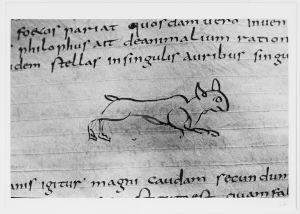 foetos pariat quosdam vero inven
philophus ait deanimalium ration
dem stellas insingulis auribus singu
anis igitur magni caudam secundum